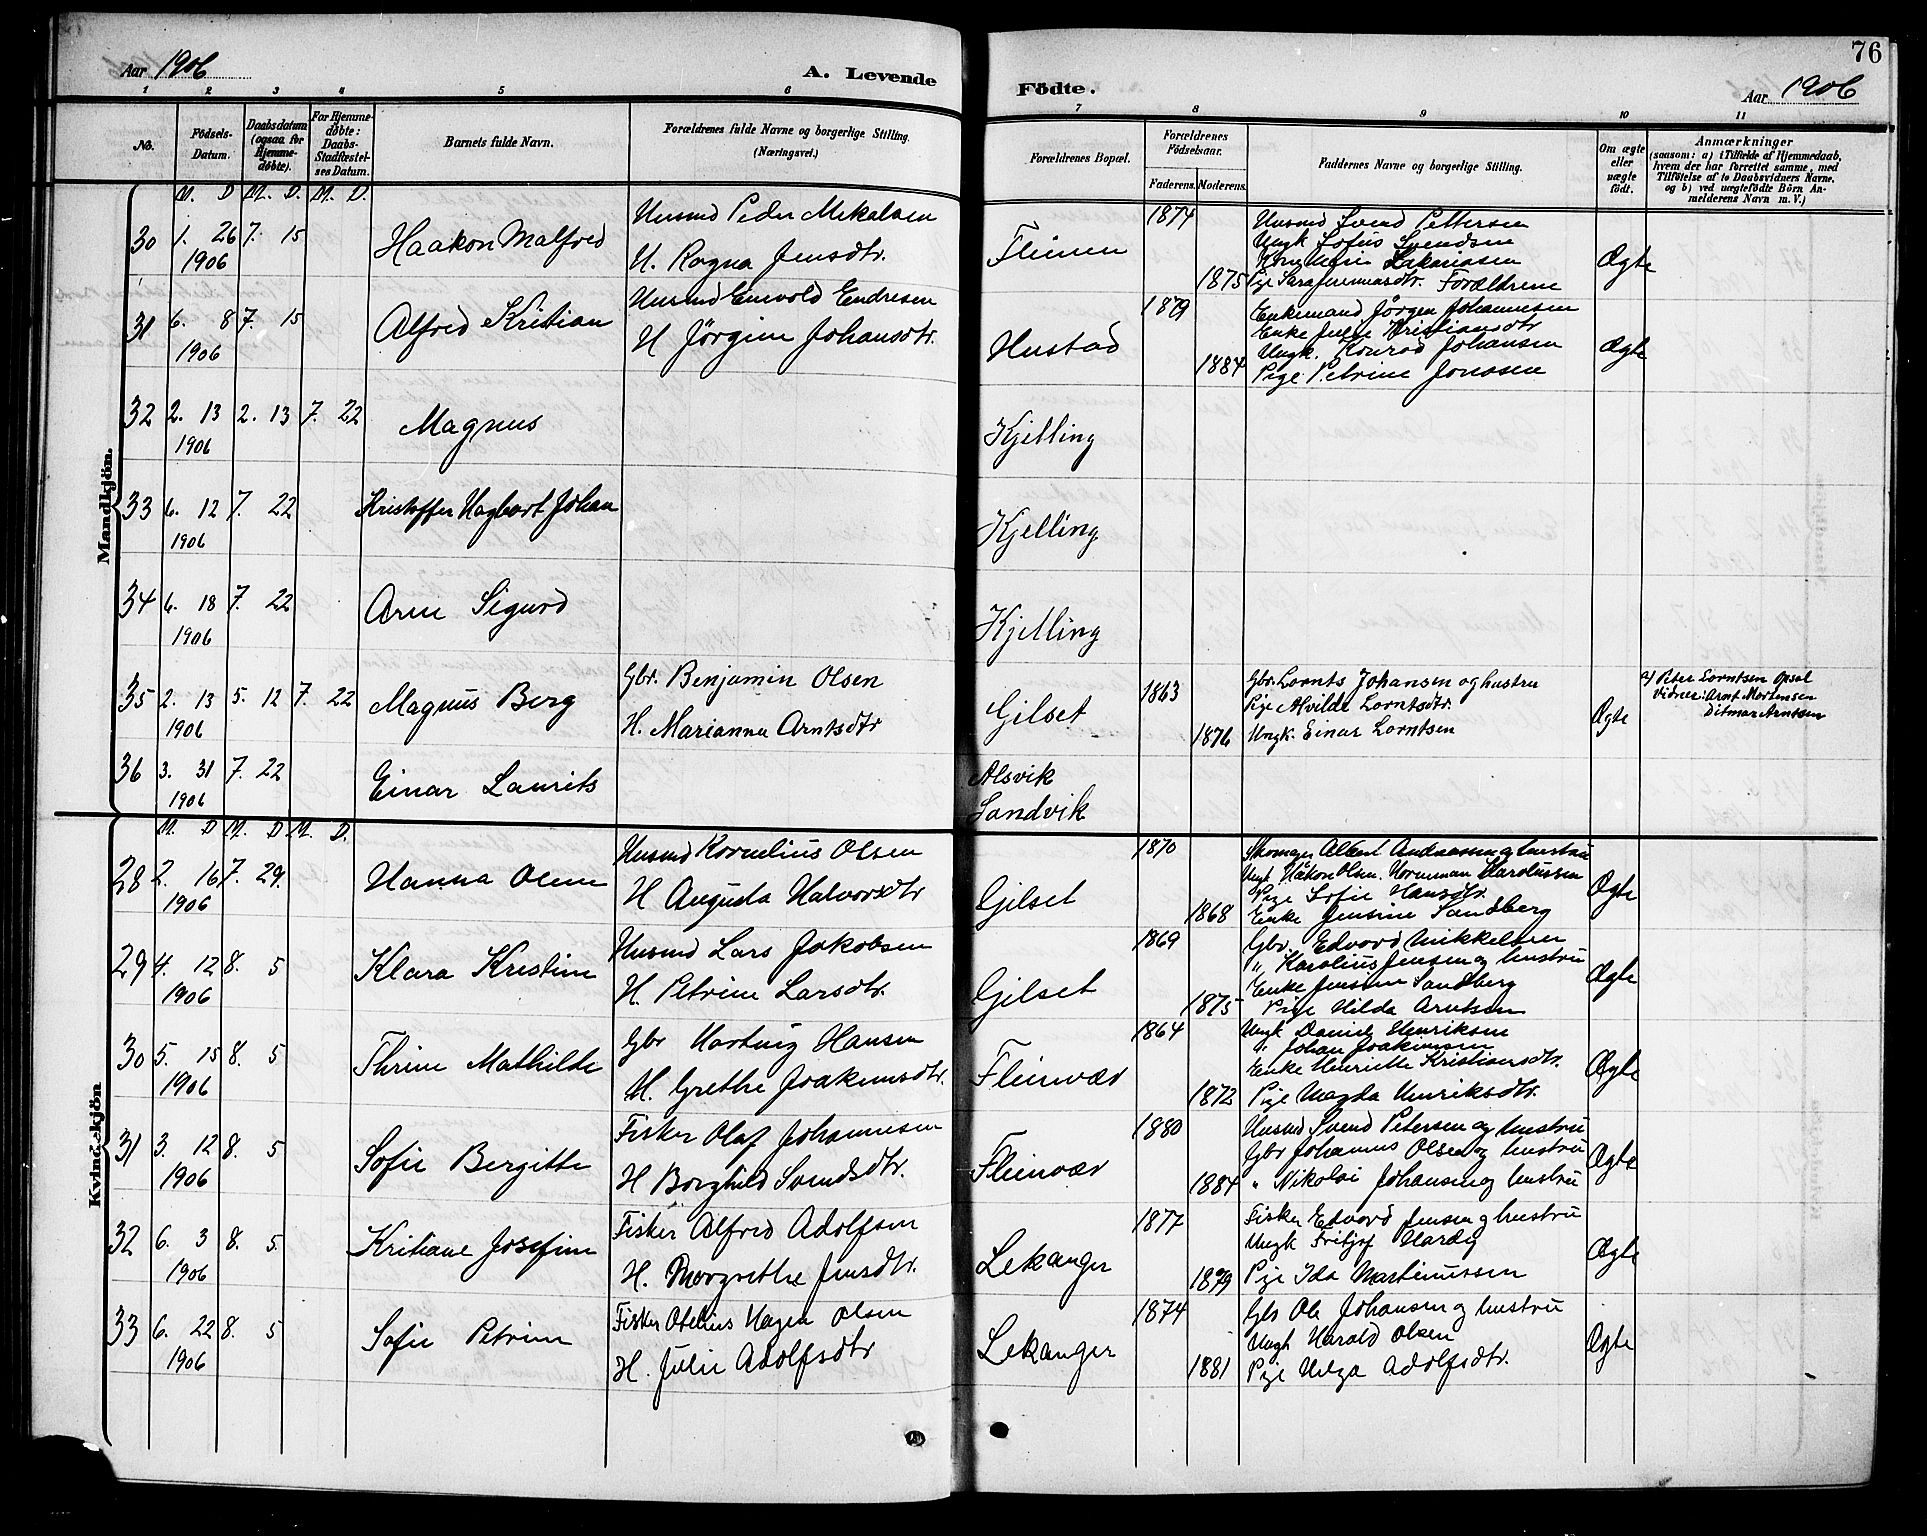 76
Aar 1906
A. Levende
Födte.
Aar 1906
1 2 3 4 5 6 7 8 9 10 11
No.
Födsels-Datum.
Daabsdatum (ogsaa for Hjemmedøbte).
For Hjemmedøbte: Daabs-Stadfæstelses Datum.
Barnets fulde Navn.
Forældrenes fulde Navne og borgerlige Stilling. (Næringsvei.)
Forældrenes Bopæl.
Forældrenes Födselsaar.
Faderens. Moderens.
Faddernes Navne og borgerlige Stilling.
Om ægte eller uægte födt.
Anmærkninger
(saasom: a) i Tilfælde af Hjemmedaab, hvem der har forrettet samme, med Tilföielse af to Daabsvidners Navne, og b) ved uægtefödte Börn Anmelderens Navn m. V.)
Mandkjön.
M. D M. D. M. D.
30 1. 26 7. 15 Haakon Malfred
1906
Husmd Peder Mekalsen
H. Ragna Jensdtr.
Fleinen
1874
1875
Husmd Svend Pettersen
Ungk Sofus Svendsen
Kone Marie Zakariasen
Forældrene
Ægte
31 6. 8 7. 15 Alfred Kristian
1906
Husmd Enevold Endresen
H Jörgine Johansdtr.
Hustad
1879
1884
Enkemand Jörgen Johannesen
Enke Kristiansdtr
Ungk. Konrad Johansen
Pige Petrine Jonssen
Ægte
32 2. 13 2. 13 7. 22 Magnus
1906
Kjelling
33 6. 12 7. 22 Kristoffer Hagbart Johan
1906
Kjelling
34 6. 18 7. 22 Arne Sigurd
1906
Kjelling
35 2. 13 5. 12 7. 22 Magnus Berg
1906
Gbr. Benjamin Olsen
H. Marianna Arntsdtr
Gilset
1863
1876
Gbr. Lornts Johansen og hustru
Pige Alvilde Lorntsdtr.
Ungk. Einar Lorntsen
Ægte
a) Peter Lorntsen Opsal
Vidner: Arnt Mortensen
Ditmar Arntsen
36 3. 31 7. 22 Einar Laurits
1906
Alsvik
Sandvik
Kvindekjön
M. D M. D M. D.
28 2. 16 7. 29. Hanna Oline
1906
Husmd Kornelius Olsen
H Augusta Halvorsdtr
Gilset
1870
1868
Skomager Albert Andreassen og hustru
Ungk Håkon Olsen. Normman Karolussen
Pige Sofie Hansdtr.
Enke Jensine Sandberg
Ægte
29 4. 12 8. 5 Klara Kristine
1906
Husmd Lars Jakobsen
H. Petrine Larsdtr.
Gilset
1869
1875
Gbr. Edvard Mikkelsen
" Karolius Jensen og hustru
Enke Jensine Sandberg
Pige Hilda Arntsen
Ægte
30 5. 15 8. 5 Thrine Mathilde
1906
Gbr Hartvig Hansen
H. Grethe Joakimsdtr.
Fleinvær
1864
1872
Ungk Daniel Henriksen
" Johan Joakimsen
Enke Henriette Kristiansdtr.
Pige Magda Henriksdtr.
Ægte
31 3. 12 8. 5 Sofie Bergitte
1906
Fisker Olaf Johannesen
H Borghild Svendsdtr.
Fleinvær
1880
1884
Husmd Svend Petersen og hustru
Gbr Johannes Olsen og hustru
" Nikolai Johansen og hustru
Ægte
32 6. 3 8. 5. Kritiane Josefine
1906
Fisker Alfred Adolfsen
H. Margrethe Jensdtr.
Lekanger
1877
1879
Fisker Edvard Jensen og hustru
Ungk Fritjof Hardy
Pige Ida Martinussen
Ægte
33 6. 22 8. 5 Sofie Petrine
1906
Fisker Otelius Hagen Olsen
H. Julie Adolfsdtr
Lekanger
1874
1881
Gbr Ole Johansen og hustru
Ungk Harald Olsen
Pige Helga Adolfsdtr.
Ægte